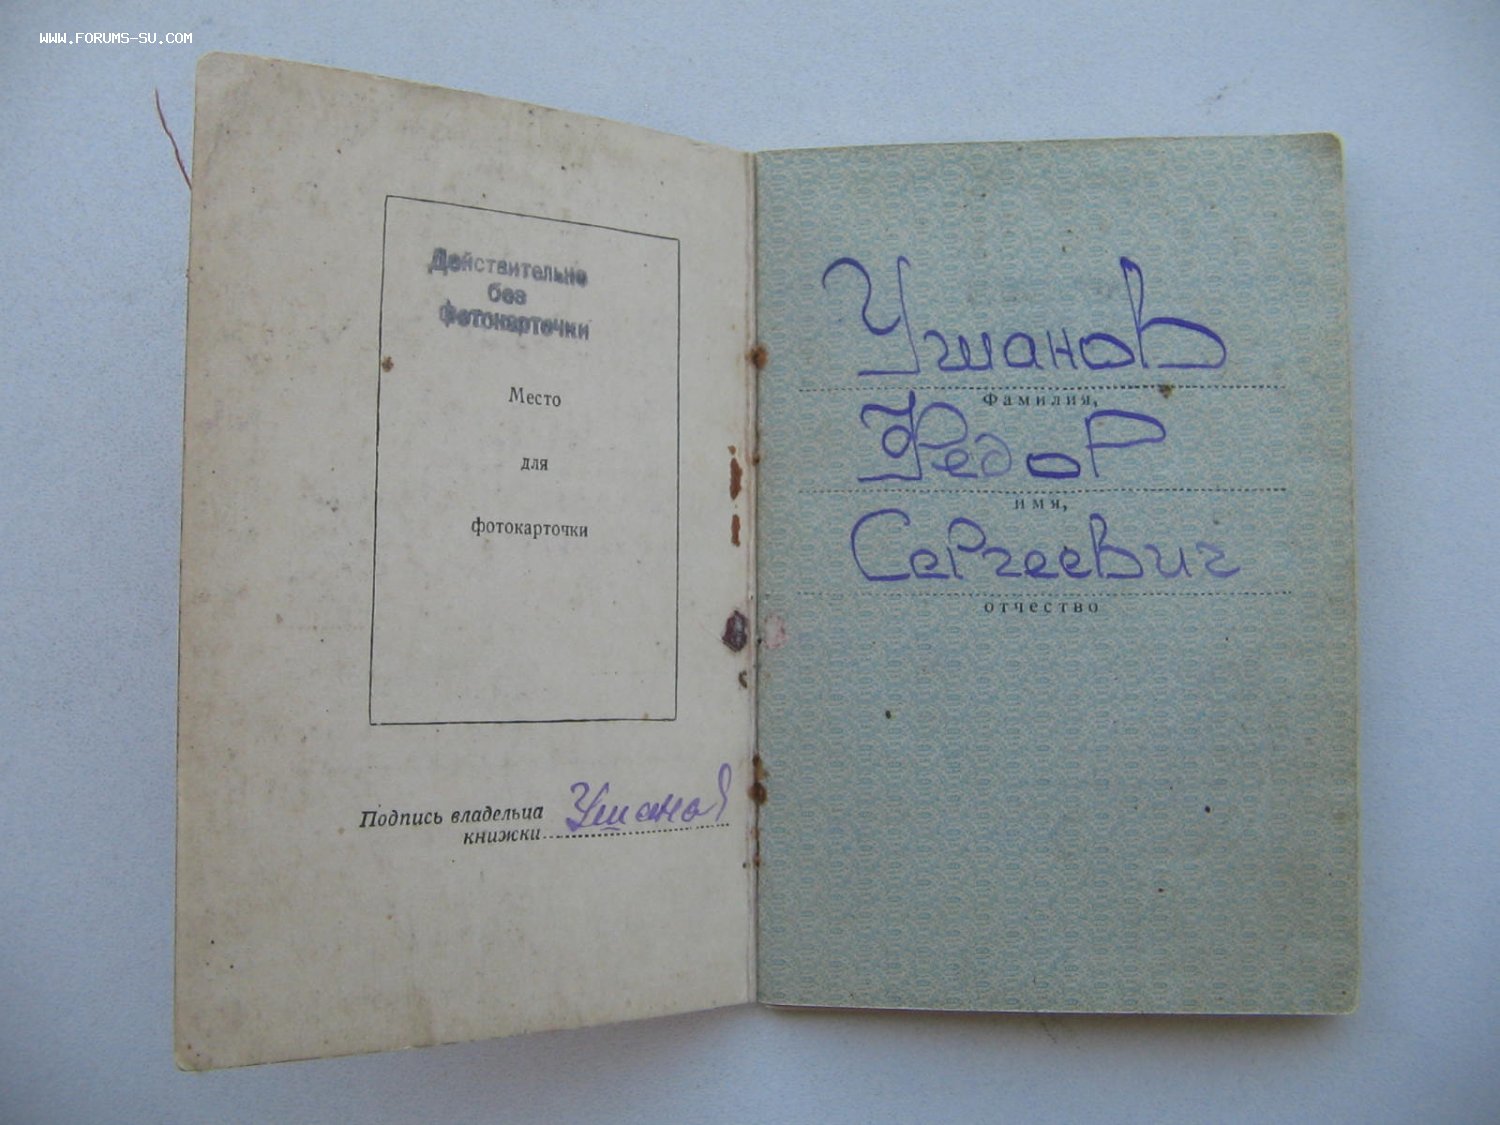 WWW.FORUMS-SU.COM
Действительно
без
фотокарточки
Место
для
фотокарточки
Подпись владельца
книжки
Ушанов
Ушанов
Фамилия,
Федор
имя,
Сергеевич
отчество